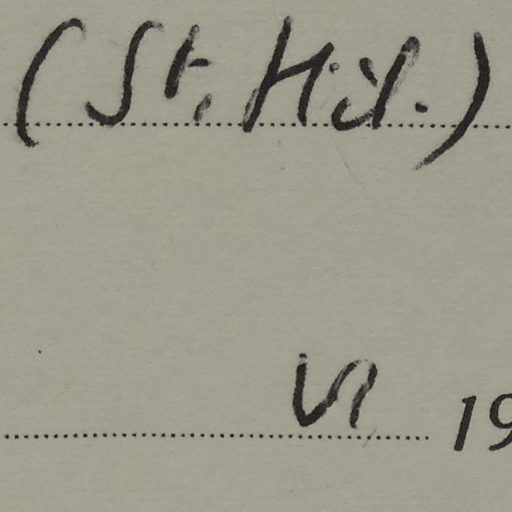 (St. Hil.)
VI 19